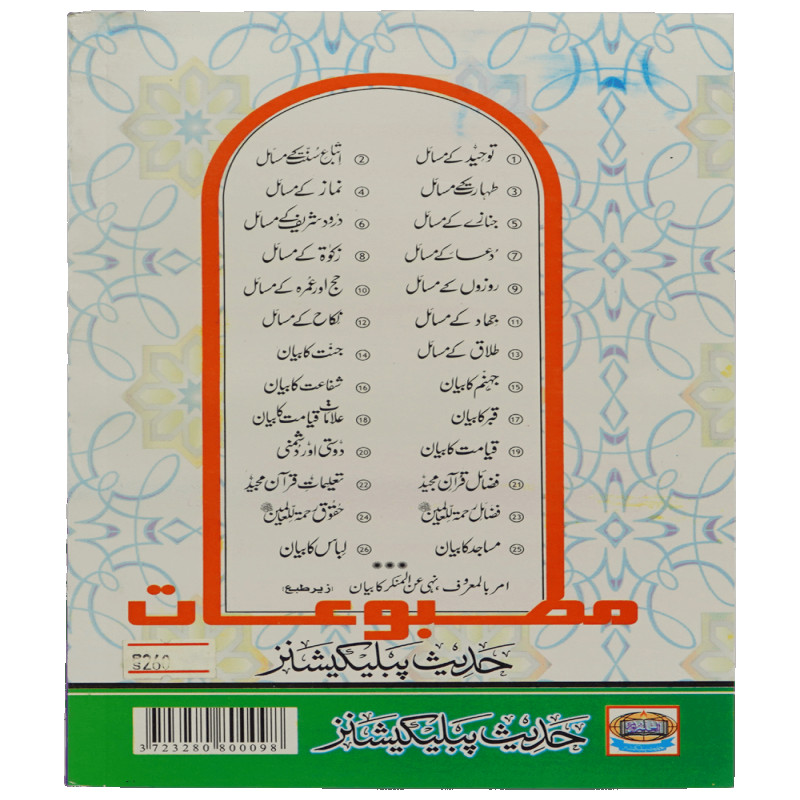 ① توحید کے مسائل ② اتباع سنت کے مسائل
③ طہارت کے مسائل ④ نماز کے مسائل
⑤ جنازے کے مسائل ⑥ درود شریف کے مسائل
⑦ دعا کے مسائل ⑧ زکوٰۃ کے مسائل
⑨ روزوں کے مسائل ⑩ حج اور عمرہ کے مسائل
⑪ جہاد کے مسائل ⑫ نکاح کے مسائل
⑬ طلاق کے مسائل ⑭ جنت کا بیان
⑮ جہنم کا بیان ⑯ شفاعت کا بیان
⑰ قبر کا بیان ⑱ علامات قیامت کا بیان
⑲ قیامت کا بیان ⑳ دوستی اور دشمنی
㉑ فضائل قرآن مجید ㉒ تعلیمات قرآن مجید
㉓ فضائل رحمۃ للعالمین ﷺ ㉔ حقوق رحمۃ للعالمین ﷺ
㉕ مساجد کا بیان ㉖ لباس کا بیان
امر بالمعروف، نہی عن المنکر کا بیان (زیر طبع)
مطبوعات
حدیث پبلیکیشنز
حدیث پبلیکیشنز
3723280800098